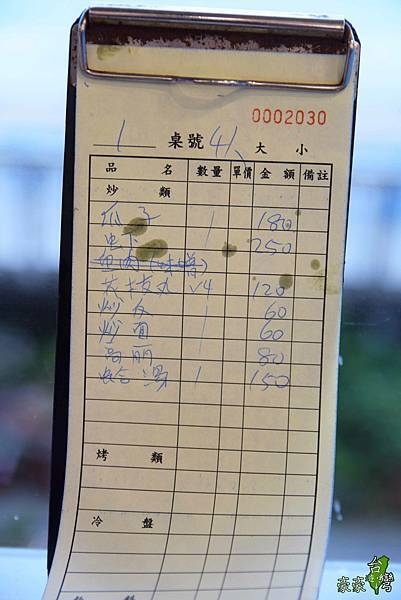 0002030
1 桌號 41 大 小
品 名 數量 單價 金 額 備註
炒 類
瓜子 1 180
250
魚肉(味噌)
√4 120
炒 1 60
炒 1 60
高丽 80
蛤湯 1 150
烤 類
冷 盤
台灣
豪豪